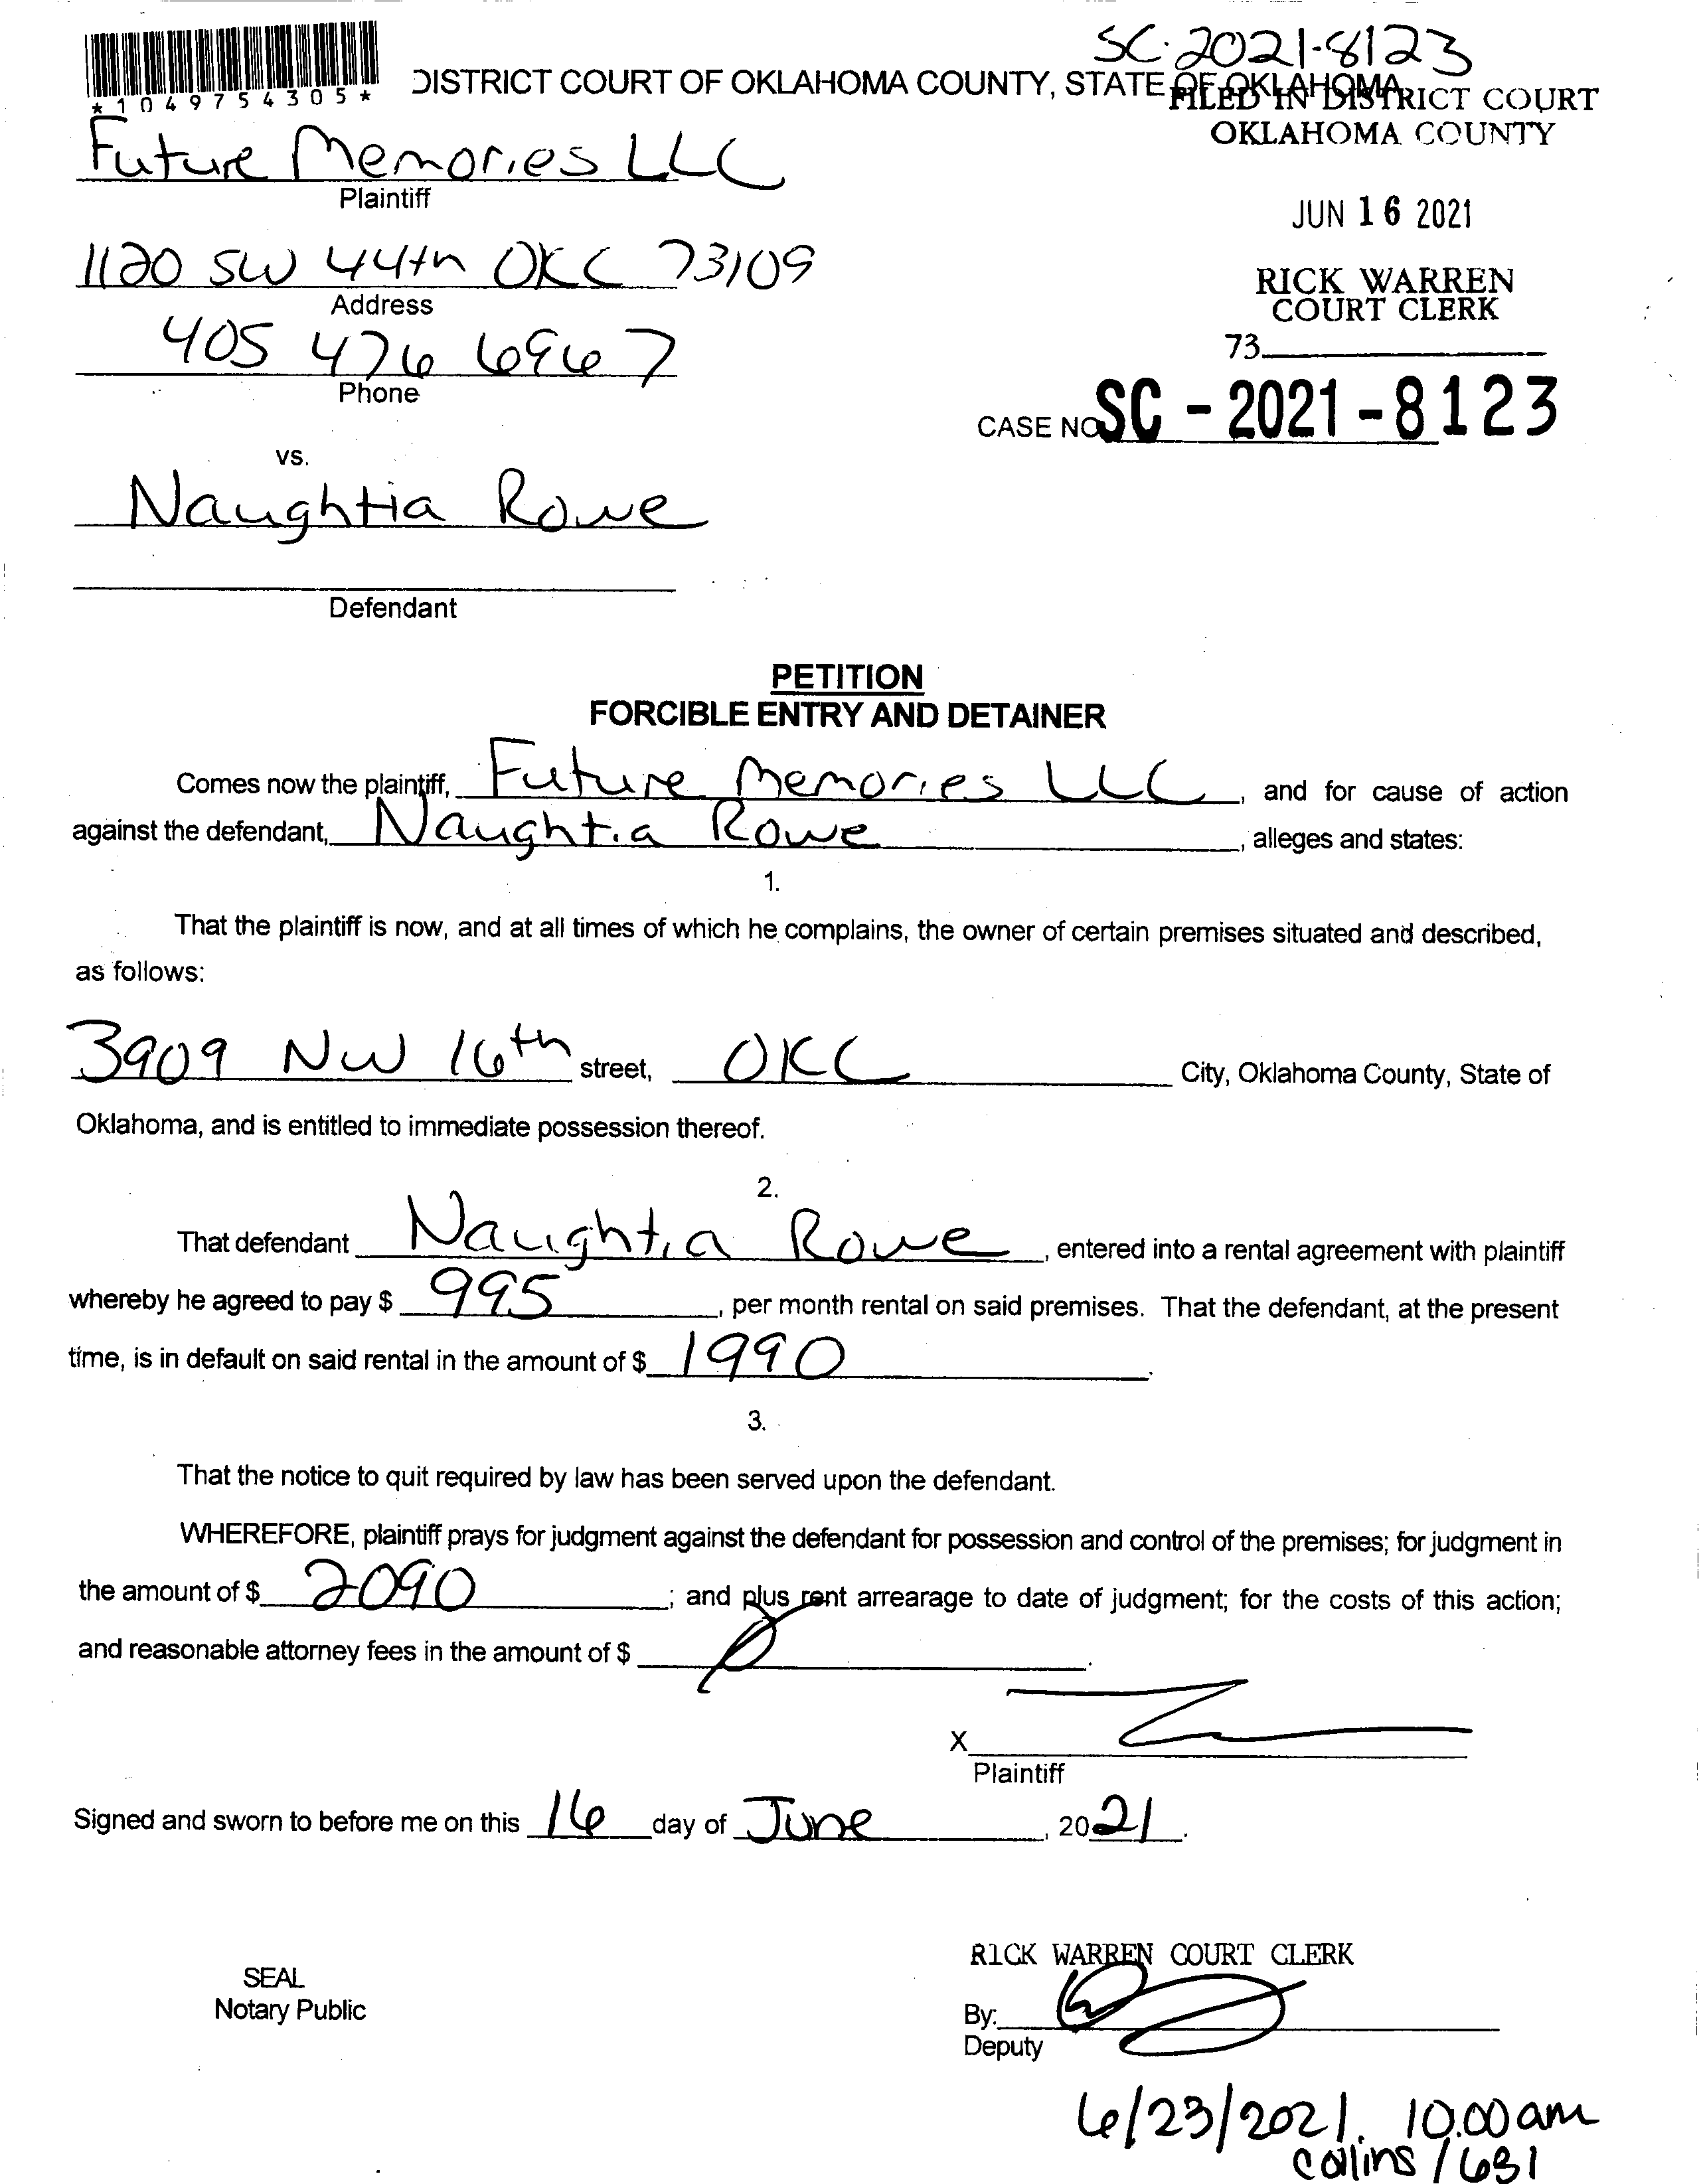 SC-2021-8123
*1049754305*
DISTRICT COURT OF OKLAHOMA COUNTY, STATE OF OKLAHOMA
FILED IN DISTRICT COURT
OKLAHOMA COUNTY
Future Memories LLC
Plaintiff
JUN 16 2021
1120 SW 44th OKC 73109
Address
RICK WARREN
COURT CLERK
405 476 6967
Phone
73
CASE NO SC - 2021 - 8123
vs.
Naughtia Rowe
Defendant
PETITION
FORCIBLE ENTRY AND DETAINER
Comes now the plaintiff, Future Memories LLC, and for cause of action
against the defendant, Naughtia Rowe, alleges and states:
1.
That the plaintiff is now, and at all times of which he complains, the owner of certain premises situated and described,
as follows:
3909 NW 16th street, OKC City, Oklahoma County, State of
Oklahoma, and is entitled to immediate possession thereof.
2.
That defendant Naughtia Rowe, entered into a rental agreement with plaintiff
whereby he agreed to pay $ 995, per month rental on said premises. That the defendant, at the present
time, is in default on said rental in the amount of $ 1990.
3.
That the notice to quit required by law has been served upon the defendant.
WHEREFORE, plaintiff prays for judgment against the defendant for possession and control of the premises; for judgment in
the amount of $ 2090; and plus rent arrearage to date of judgment; for the costs of this action;
and reasonable attorney fees in the amount of $ 0.
X
Plaintiff
Signed and sworn to before me on this 16 day of June, 2021.
RICK WARREN COURT CLERK
SEAL
Notary Public
By:
Deputy
6/23/2021. 10:00am
Collins / 631